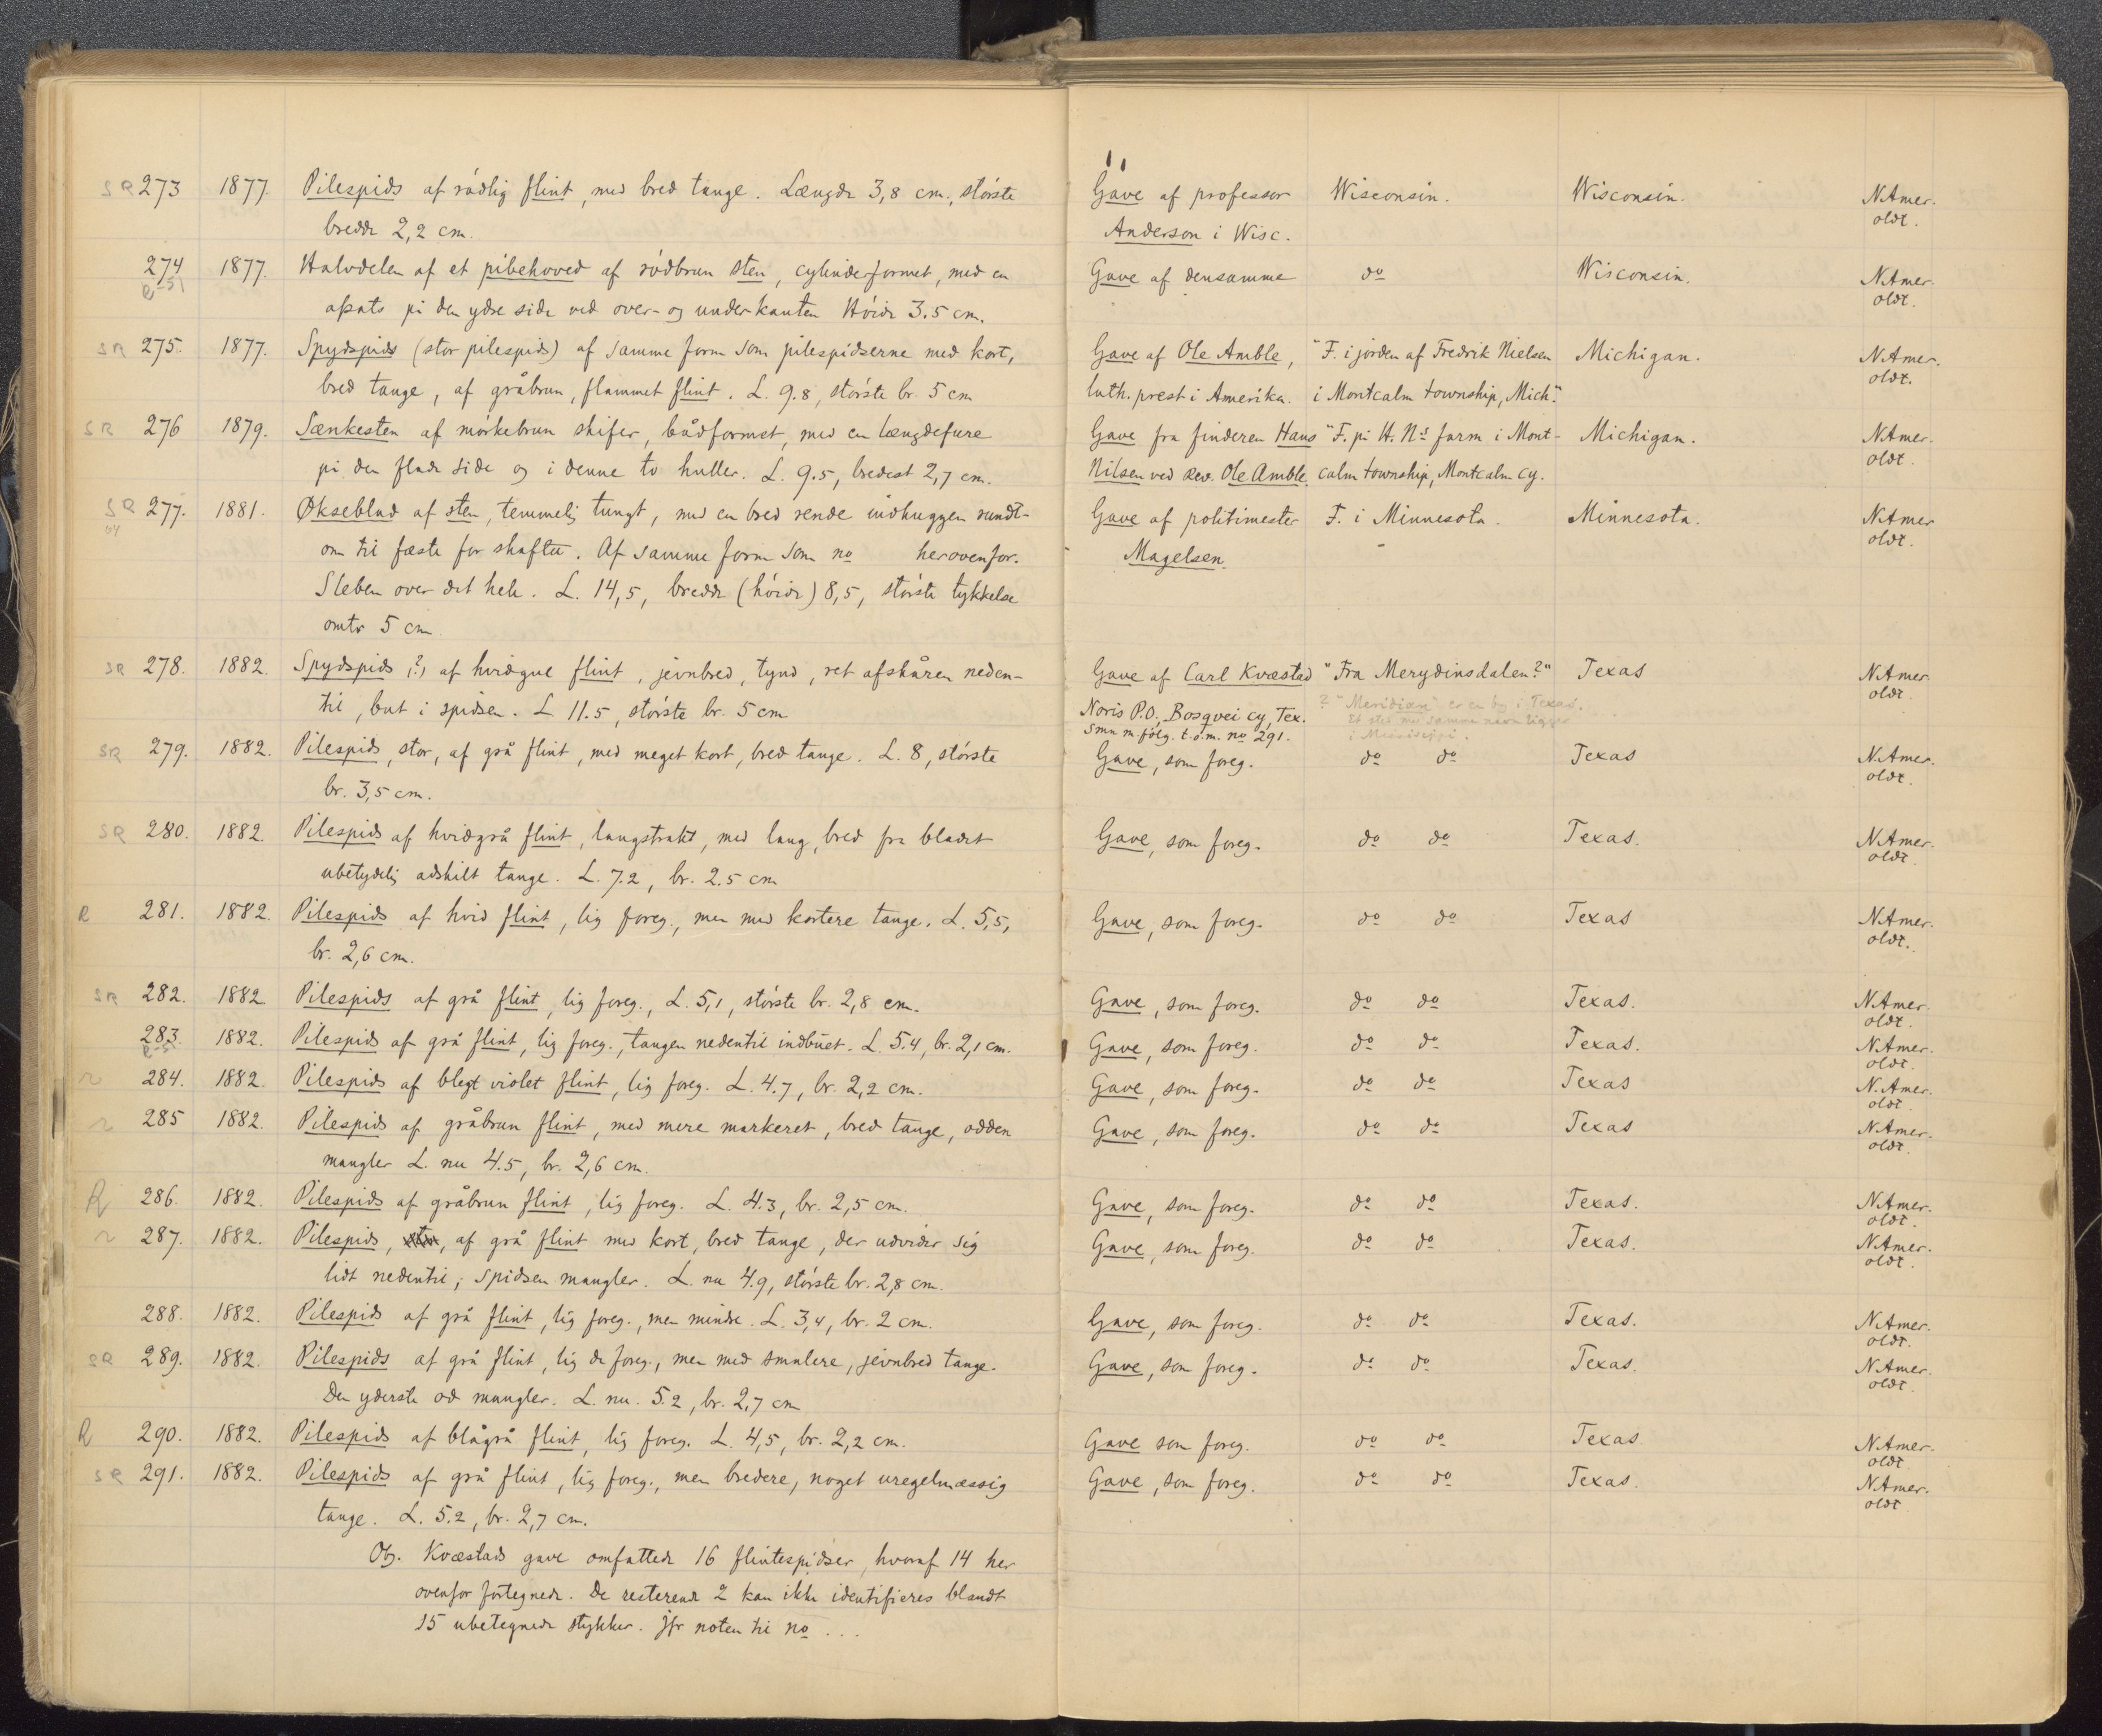 SR 273 1877. Pilespids af rödlig flint, med bred tange. Længde 3,8 cm., störste
bredde 2,2 cm.
Gave af professor Wisconsin. Wisconsin. N.Amer.
Anderson i Wisc. oldt.
274 1877. Halvdelen af et pibehoved af rödbrun sten, cylinderformet, med en
afsats på den ydre side ved over- og underkanten Höide 3.5 cm.
Gave af densamme do Wisconsin. N.Amer.
oldt.
SR 275. 1877. Spydspids (stor pilespids) af samme form som pilespidserne med kort,
bred tange, af gråbrun, flammet flint. L. 9.8, störste br. 5 cm
Gave af Ole Amble, "F. i jorden af Fredrik Nielsen Michigan. N.Amer.
luth. prest i Amerika. i Montcalm township, Mich". oldt.
SR 276 1879. Sænkesten af mörkebrun skifer, bådformet, med en længdefure
på den flade side og i denne to huller. L. 9.5, bredest 2,7 cm.
Gave fra finderen Hans "F. på H. Ns farm i Mont- Michigan. N.Amer.
Nilsen ved Rev. Ole Amble. calm township, Montcalm cy. oldt.
SR 277. 1881. Økseblad af sten, temmelig tungt, med en bred rende indhuggen rundt-
om til fæste for skaftet. Af samme form som no herovenfor.
Sleben over det hele. L. 14,5, bredde (höide) 8,5, störste tykkelse
omtr 5 cm
Gave af politimester F. i Minnesota. Minnesota. N.Amer
Magelsen. oldt.
SR 278. 1882. Spydspids (?) af hvidgul flint, jevnbred, tynd, ret afskåren neden-
til, but i spidsen. L 11.5, störste br. 5 cm
Gave af Carl Kvæstad "Fra Merydinsdalen?" Texas N.Amer
Noris P.O., Bosqvei cy, Tex. ? "Meridian" er en by i Texas. oldt.
Smn m. fölg. t.o.m. no 291. Et sted med samme navn ligger
i Mississippi.
SR 279. 1882. Pilespids, stor, af grå flint, med meget kort, bred tange. L. 8, störste
br. 3,5 cm.
Gave, som foreg. do do Texas N.Amer.
oldt.
SR 280. 1882. Pilespids af hvidgrå flint, langstrakt, med lang, bred fra bladet
ubetydelig adskilt tange. L. 7.2, br. 2.5 cm
Gave, som foreg. do do Texas. N.Amer.
oldt.
R 281. 1882. Pilespids af hvid flint, lig foreg., men med kortere tange. L. 5,5,
br. 2,6 cm.
Gave, som foreg. do do Texas N.Amer.
oldt.
SR 282. 1882 Pilespids af grå flint, lig foreg., L. 5,1, störste br. 2,8 cm.
Gave, som foreg. do do Texas. N.Amer.
oldt.
283. 1882. Pilespids af grå flint, lig foreg., tangen nedentil indbuet. L. 5.4, br. 2,1 cm.
Gave, som foreg. do do Texas. N.Amer.
oldt.
r 284. 1882. Pilespids af blegt violet flint, lig foreg. L. 4.7, br. 2,2 cm.
Gave, som foreg. do do Texas N.Amer.
oldt.
r 285 1882. Pilespids af gråbrun flint, med mere markeret, bred tange, odden
mangler L. nu 4.5, br. 2,6 cm.
Gave, som foreg. do do Texas N.Amer.
oldt.
R 286. 1882. Pilespids af gråbrun flint, lig foreg. L. 4.3, br. 2,5 cm.
Gave, som foreg. do do Texas. N.Amer.
oldt.
r 287. 1882. Pilespids, af grå flint med kort, bred tange, der udvider sig
lidt nedentil, spidsen mangler. L. nu 4.9, störste br. 2,8 cm.
Gave, som foreg. do do Texas. N.Amer.
oldt.
288. 1882. Pilespids af grå flint, lig foreg., men mindre. L. 3,4, br. 2 cm.
Gave, som foreg. do do Texas. N.Amer.
oldt.
SR 289. 1882. Pilespids af grå flint, lig de foreg., men med smalere, jevnbred tange.
Den yderste od mangler. L. nu. 5.2, br. 2,7 cm
Gave, som foreg. do do Texas. N.Amer.
oldt.
R 290. 1882. Pilespids af blågrå flint, lig foreg. L. 4,5, br. 2,2 cm.
Gave som foreg. do do Texas N.Amer.
oldt
SR 291. 1882. Pilespids af grå flint, lig foreg., men bredere, noget uregelmæssig
tange. L. 5.2, br. 2,7 cm.
Gave, som foreg. do do Texas. N.Amer.
oldt
Obs. Kvæstads gave omfattede 16 flintespidser, hvoraf 14 her
ovenfor fortegnede. De resterende 2 kan ikke identifieres blandt
15 ubetegnede stykker. Jfr noten til no ...